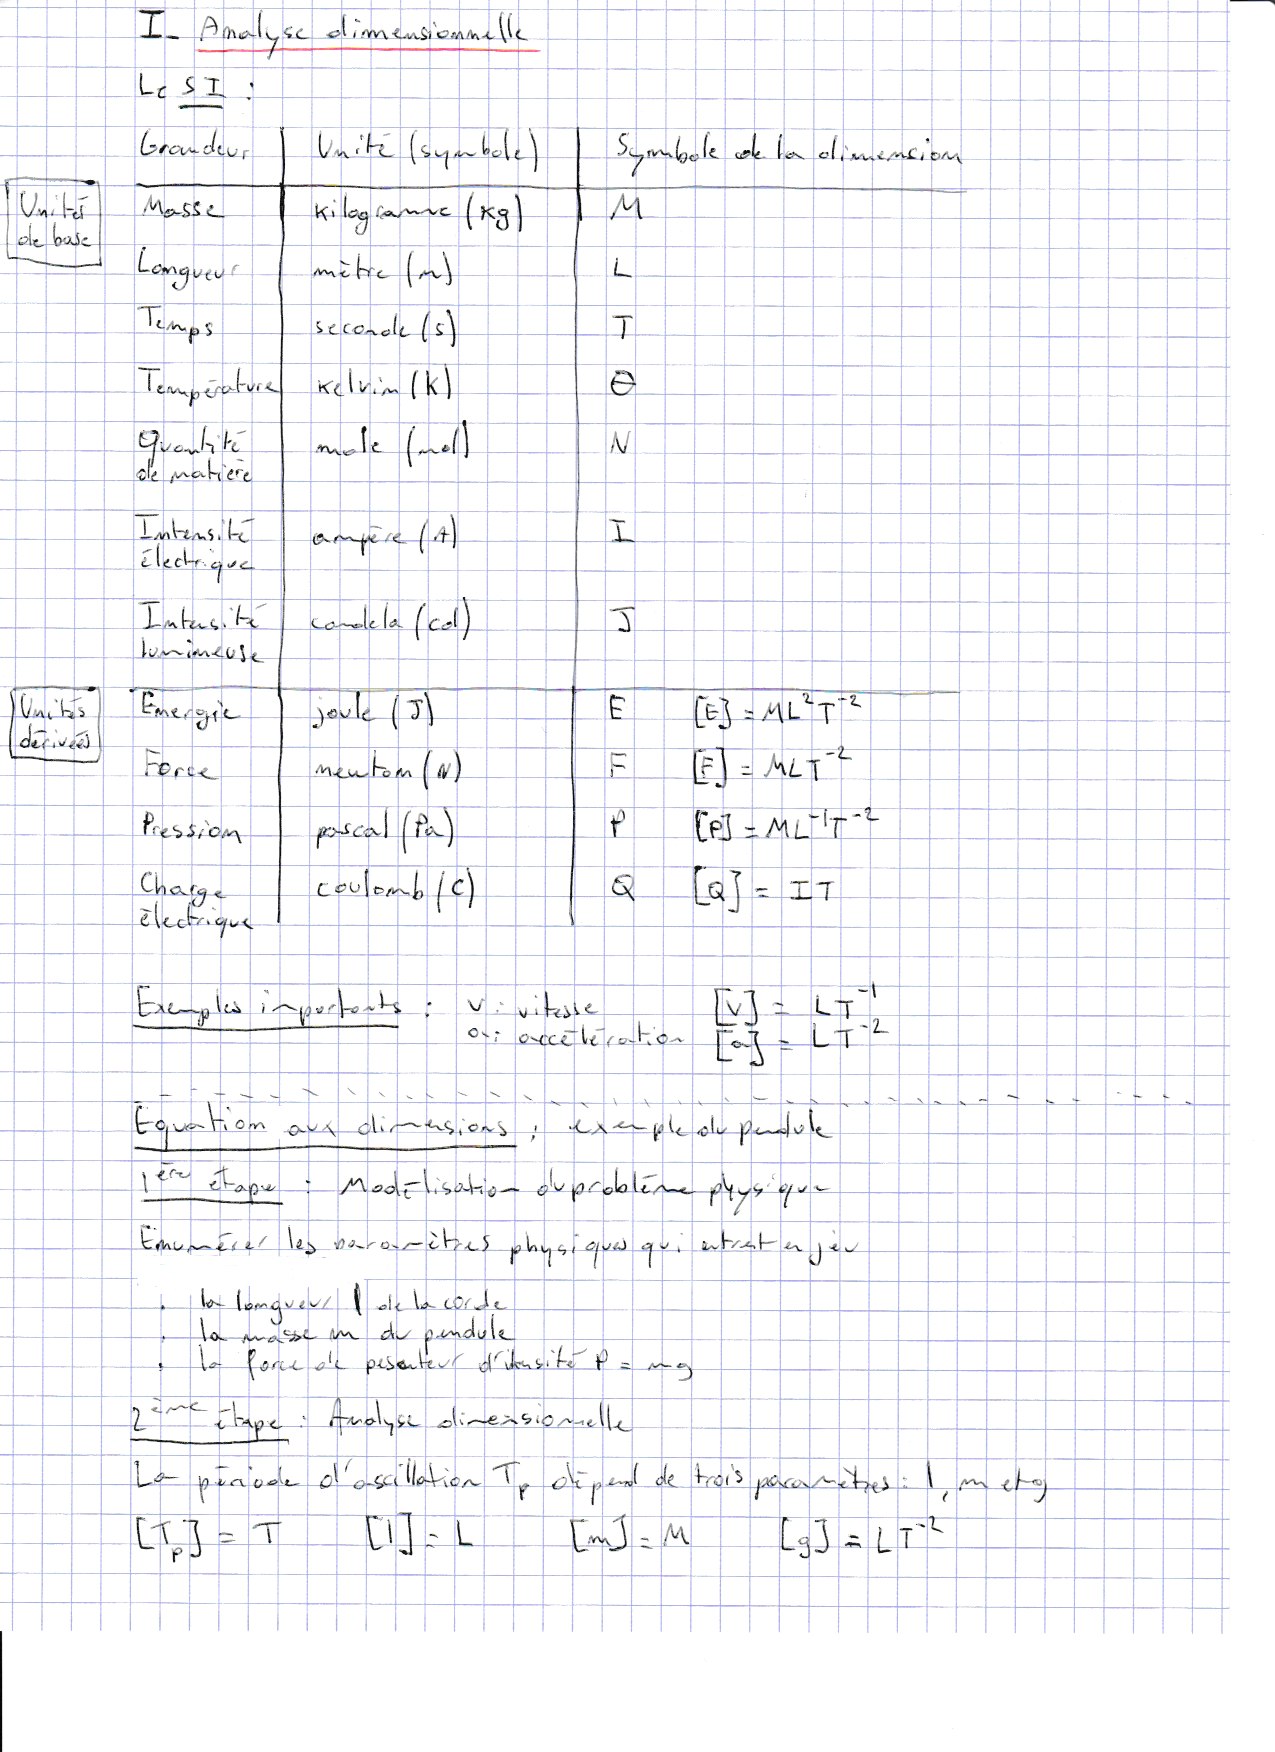 I- Analyse dimensionnelle
Le SI :
Grandeur Unité (symbole) Symbole de la dimension
Unités de base
Masse kilogramme (kg) M
Longueur mètre (m) L
Temps seconde (s) T
Température kelvin (K) Θ
Quantité mole (mol) N
de matière
Intensité ampère (A) I
électrique
Intensité candela (cd) J
lumineuse
Unités dérivées
Energie joule (J) E [E] = ML²T⁻²
Force newton (N) F [F] = MLT⁻²
Pression pascal (Pa) P [P] = ML⁻¹T⁻²
Charge coulomb (C) Q [Q] = IT
électrique
Exemples importants : v : vitesse [v] = LT⁻¹
a : accélération [a] = LT⁻²
Equation aux dimensions : exemple du pendule
1ère étape : Modélisation du problème physique
Enumérer les paramètres physiques qui entrent en jeu
. la longueur l de la corde
. la masse m du pendule
. la force de pesanteur d'intensité P = mg
2ème étape : Analyse dimensionnelle
La période d'oscillation Tp dépend de trois paramètres : l, m et g
[Tp] = T [l] = L [m] = M [g] = LT⁻²